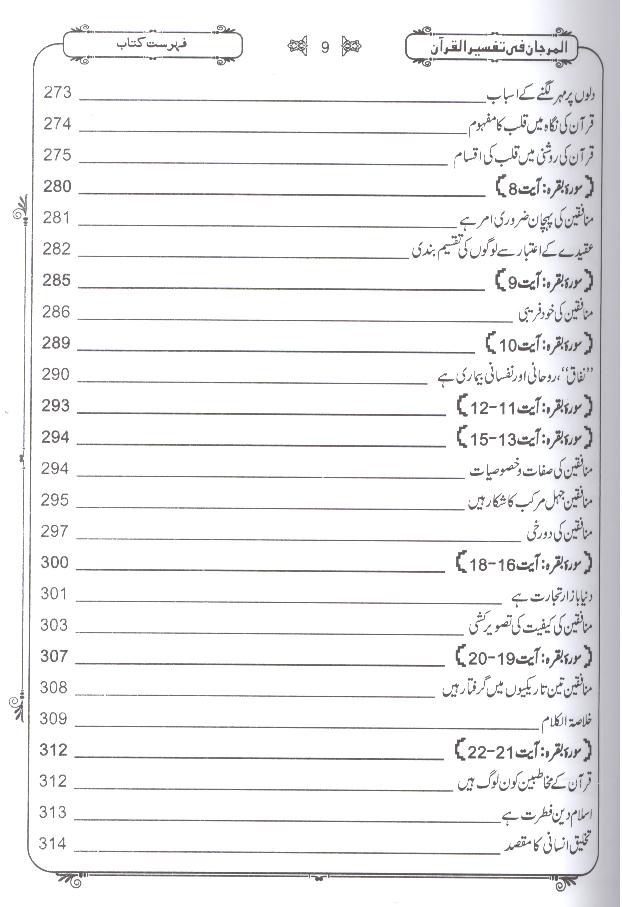 المرجان فی تفسیر القرآن 9 فہرست کتاب
دلوں پر مہر لگنے کے اسباب 273
قرآن کی نگاہ میں قلب کا مفہوم 274
قرآن کی روشنی میں قلب کی اقسام 275
﴿سورۂ بقرہ: آیت 8﴾ 280
منافقین کی پہچان ضروری امر ہے 281
عقیدے کے اعتبار سے لوگوں کی تقسیم بندی 282
﴿سورۂ بقرہ: آیت 9﴾ 285
منافقین کی خود فریبی 286
﴿سورۂ بقرہ: آیت 10﴾ 289
”نفاق“، روحانی اور نفسانی بیماری ہے 290
﴿سورۂ بقرہ: آیت 11-12﴾ 293
﴿سورۂ بقرہ: آیت 13-15﴾ 294
منافقین کی صفات و خصوصیات 294
منافقین جہل مرکب کا شکار ہیں 295
منافقین کی دورخی 297
﴿سورۂ بقرہ: آیت 16-18﴾ 300
دنیا بازار تجارت ہے 301
منافقین کی کیفیت کی تصویر کشی 303
﴿سورۂ بقرہ: آیت 19-20﴾ 307
منافقین تین تاریکیوں میں گرفتار ہیں 308
خلاصۃ الکلام 309
﴿سورۂ بقرہ: آیت 21-22﴾ 312
قرآن کے مخاطبین کون لوگ ہیں 312
اسلام دین فطرت ہے 313
تخلیق انسانی کا مقصد 314